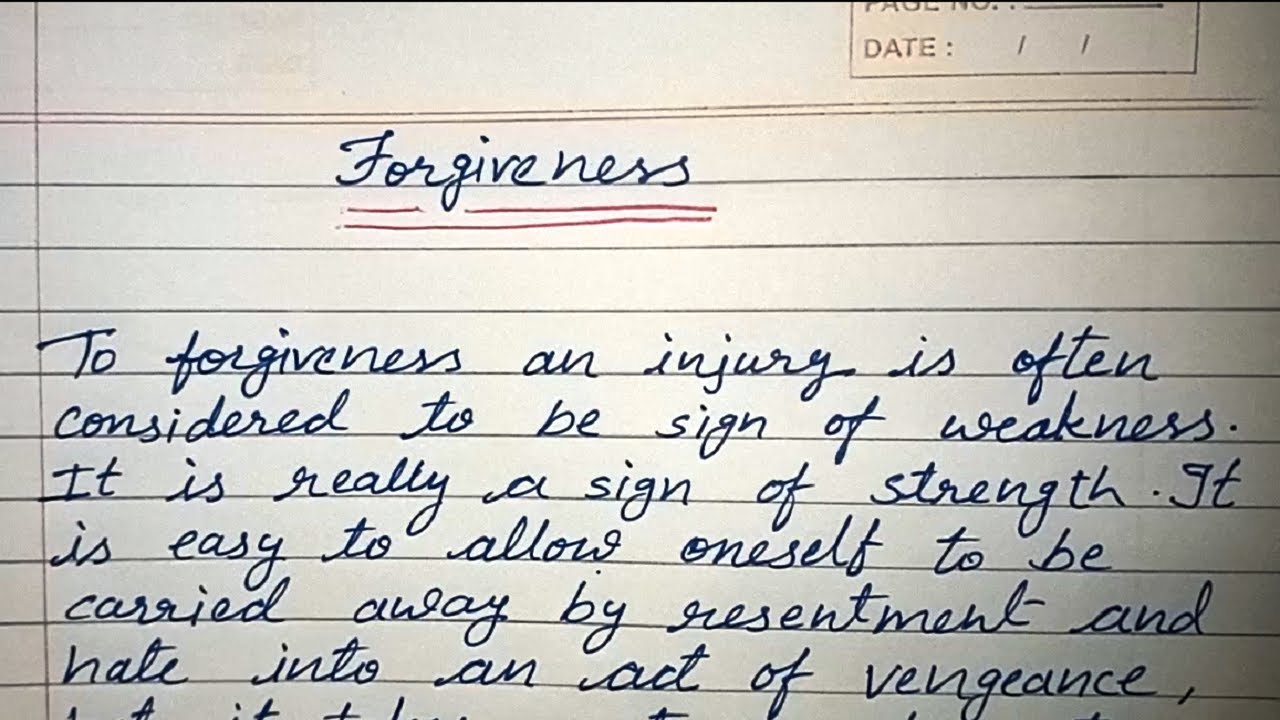 PAGE NO. :
DATE : / /
Forgiveness
To forgiveness an injury is often
considered to be sign of weakness.
It is really a sign of strength. It
is easy to allow oneself to be
carried away by resentment and
hate into an act of vengeance,